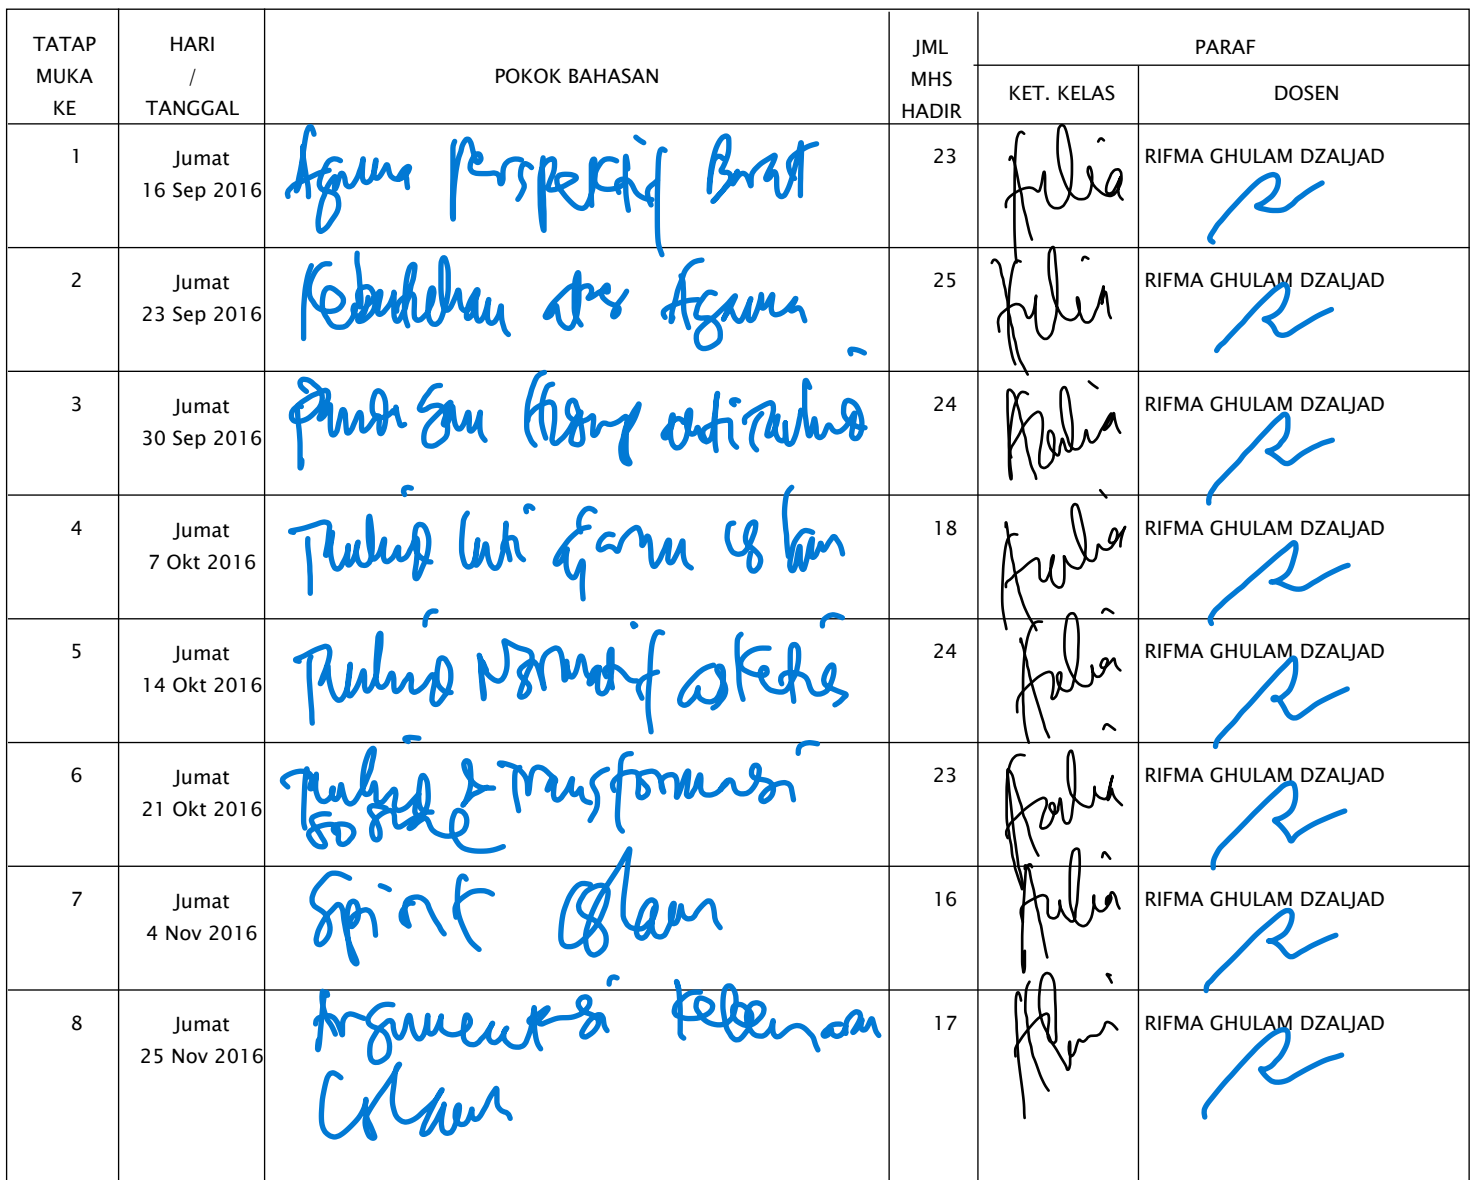 TATAP MUKA KE HARI / TANGGAL POKOK BAHASAN JML MHS HADIR PARAF
KET. KELAS DOSEN
1 Jumat 16 Sep 2016 Agama Perspektif Barat 23 RIFMA GHULAM DZALJAD
2 Jumat 23 Sep 2016 Kebutuhan atas Agama 25 RIFMA GHULAM DZALJAD
3 Jumat 30 Sep 2016 24 RIFMA GHULAM DZALJAD
4 Jumat 7 Okt 2016 Tauhid Inti Agama Islam 18 RIFMA GHULAM DZALJAD
5 Jumat 14 Okt 2016 Tauhid Normatif asketis 24 RIFMA GHULAM DZALJAD
6 Jumat 21 Okt 2016 Tauhid & Transformasi 23 RIFMA GHULAM DZALJAD
sosial
7 Jumat 4 Nov 2016 Spirit Islam 16 RIFMA GHULAM DZALJAD
8 Jumat 25 Nov 2016 Argumentasi Kebenaran 17 RIFMA GHULAM DZALJAD
Islam